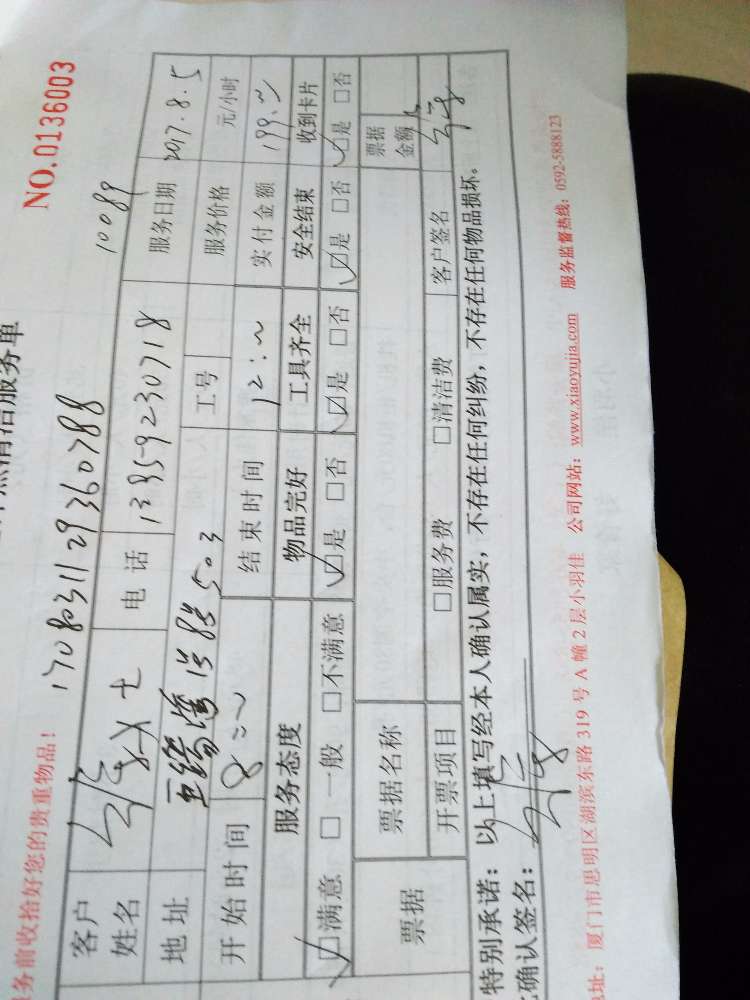 清洁服务单
NO.0136003
务前收拾好您的贵重物品!
1708031129360788
10089
客户姓名 女士 电话 13959230718 服务日期 2017.8.5
地址 503 工号 服务价格 元/小时
开始时间 8:00 结束时间 12:00 实付金额 199.00
服务态度 物品完好 工具齐全 安全结束 收到卡片
☑满意 □一般 □不满意 ☑是 □否 ☑是 □否 ☑是 □否 ☑是 □否
票据 票据名称 票据金额
开票项目 □服务费 □清洁费 客户签名
特别承诺:以上填写经本人确认属实,不存在任何纠纷,不存在任何物品损坏。
确认签名:
址:厦门市思明区湖滨东路 319 号 A 幢 2 层小羽佳 公司网站:www.xiaoyujia.com 服务监督热线:0592-5888123